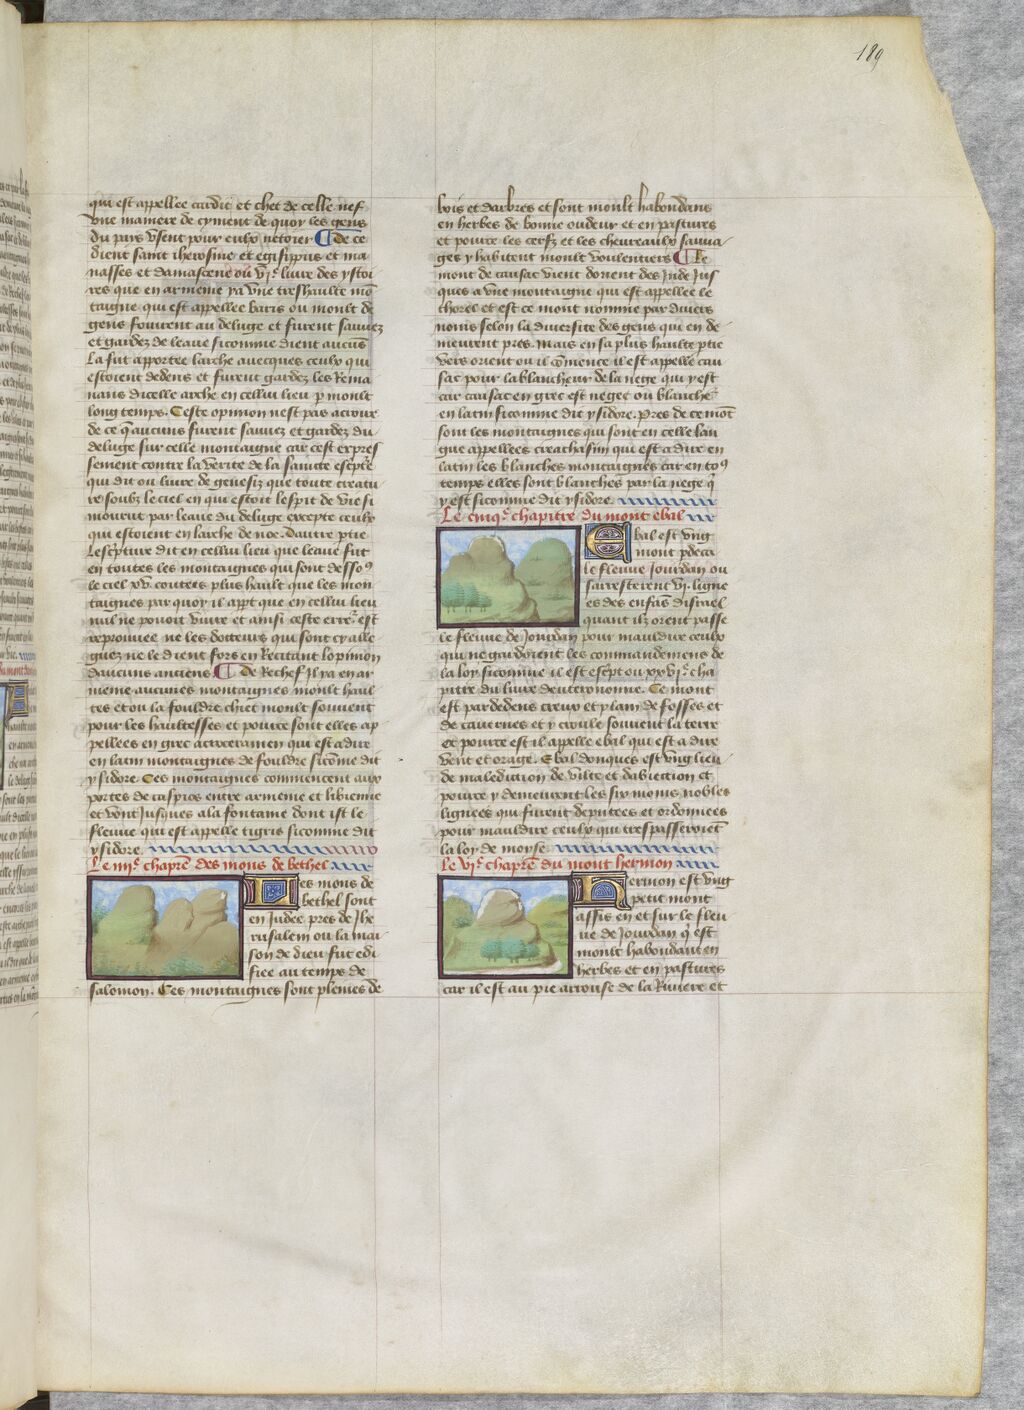 189
qui est appellee cardit et chet de celle nef
vne maniere de cyment de quoy les gens
du pays vsent pour eulx netoier ¶ De ce
dient saint iherosme et egisippus et ma
nasses et damascene ou vi.e liure des ystoi
res que en armenie ya vne treshaulte mō
taigne qui est appellee baris ou moult de
gens fouirent au deluge et furent sauuez
et gardez de leaue sicomme dient aucūs
La fut apportee larche auecques ceulx qui
estoient dedens et furent gardez les Rema
nans dicelle arche en cellui lieu p moult
long temps. Ceste opinion nest pas a croire
de ce q̄ aucuns furent sauuez et gardez du
deluge sur celle montaigne car cest expres
sement contre la verite de la saincte escp̄te
qui dit ou liure de genesiz que toute creatu
re soubz le ciel en qui estoit lesprit de vie si
mourut par leaue du deluge excepte ceulx
qui estoient en larche de noe. Dautre ptie
Lescripture dit en cellui lieu que leaue fut
en toutes les montaignes qui sont dessoꝰ
le ciel xv. coutes plus hault que les mon
taignes par quoy il appt que en cellui lieu
nul ne pouoit viure et ainsi ceste errer̄ est
reprouuee ne les docteurs qui sont cy alle
guez ne le dient fors en Recitant lopinion
daucuns anciens ¶ De Rechef Il ya en ar
menie aucunes montaignes moult haul
tes et ou la fouldre chiet moult souuent
pour les haultesses et pource sont elles ap
pellees en grec acroceramen qui est a dire
en latin montaignes de fouldre sicōme dit
ysidore. Ces montaignes commencent aux
portes de caspios entre armenie et libienne
et vont Jusques ala fontaine dont ist le
fleuue qui est appelle tigris sicomme dit
ysidore.
Le iiii.e chapr̄e des mons de bethel
Les mons de
bethel sont
en Judee pres de Jhe
rusalem ou la mai
son de dieu fut edi
fiee au temps de
salomon. Ces montaignes sont plenies de
bois et darbres et sont moult habondans
en herbes de bonne oudeur et en pastures
et pource les cerfz et les cheureaulx sauua
ges y habitent moult voulentiers ¶ Le
mont de causac vient donent des Jnde Jus
ques a vne montaigne qui est appellee le
chorel et est ce mont nomme par diuers
noms selon la diuersite des gens qui en de
meurent pres. Mais en sa plus haulte ptie
vers orient ou il cōmence il est appelle cau
sac pour la blancheur de la nege qui y est
car causac en grec est nege ou blanche
en latin sicomme dit ysidore. Pres de ce mōt
sont les montaignes qui sont en celle lan
gue appellees creachasim qui est a dire en
latin les blanches montaignes car en toꝰ
temps elles sont blanches par la nege q̄
y est sicomme dit ysidore
Le cinqe. chapitre du mont ebal
Ebal est vng
mont pdeca
le fleuue Jourdan ou
sarresterent vi. ligne
es des enfās disrael
quant ilz orent passe
le fleuue de Jourdan pour mauldire ceulx
qui ne gardoient les commandemens de
la loy sicomme il est escpt ou xxvi.e cha
pitre du liure deuteronome. Ce mont
est par dedens creux et plain de fosses et
de cauernes et y croule souuent la terre
Et pource est il appelle ebal qui est a dire
vent et orage. Ebal donques est vng lieu
de malediction de vilte et dabiection et
pource y demeurent les six moins nobles
lignees qui furent deputees et ordonnees
pour mauldire ceulx qui trespasseroiēt
la loy de moyse.
Le vi.e chapr̄e du mont hermon
Hermon est vng
petit mont
assis en et sur le fleu
ue de Jourdan q̄ est
moult habondant en
herbes et en pastures
car il est au pie arrouse de la Riuiere et